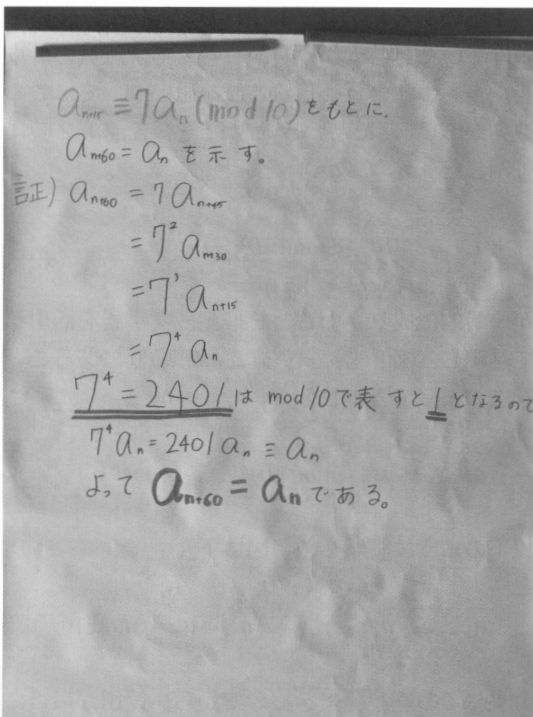 a_{n+15} ≡ 7a_n (mod 10) をもとに、
a_{n+60} = a_n を示す。
証) a_{n+60} = 7a_{n+45}
= 7² a_{n+30}
= 7³ a_{n+15}
= 7⁴ a_n
7⁴ = 2401 は mod 10で表すと1となるので
7⁴a_n = 2401a_n ≡ a_n
よって a_{n+60} = a_n である。